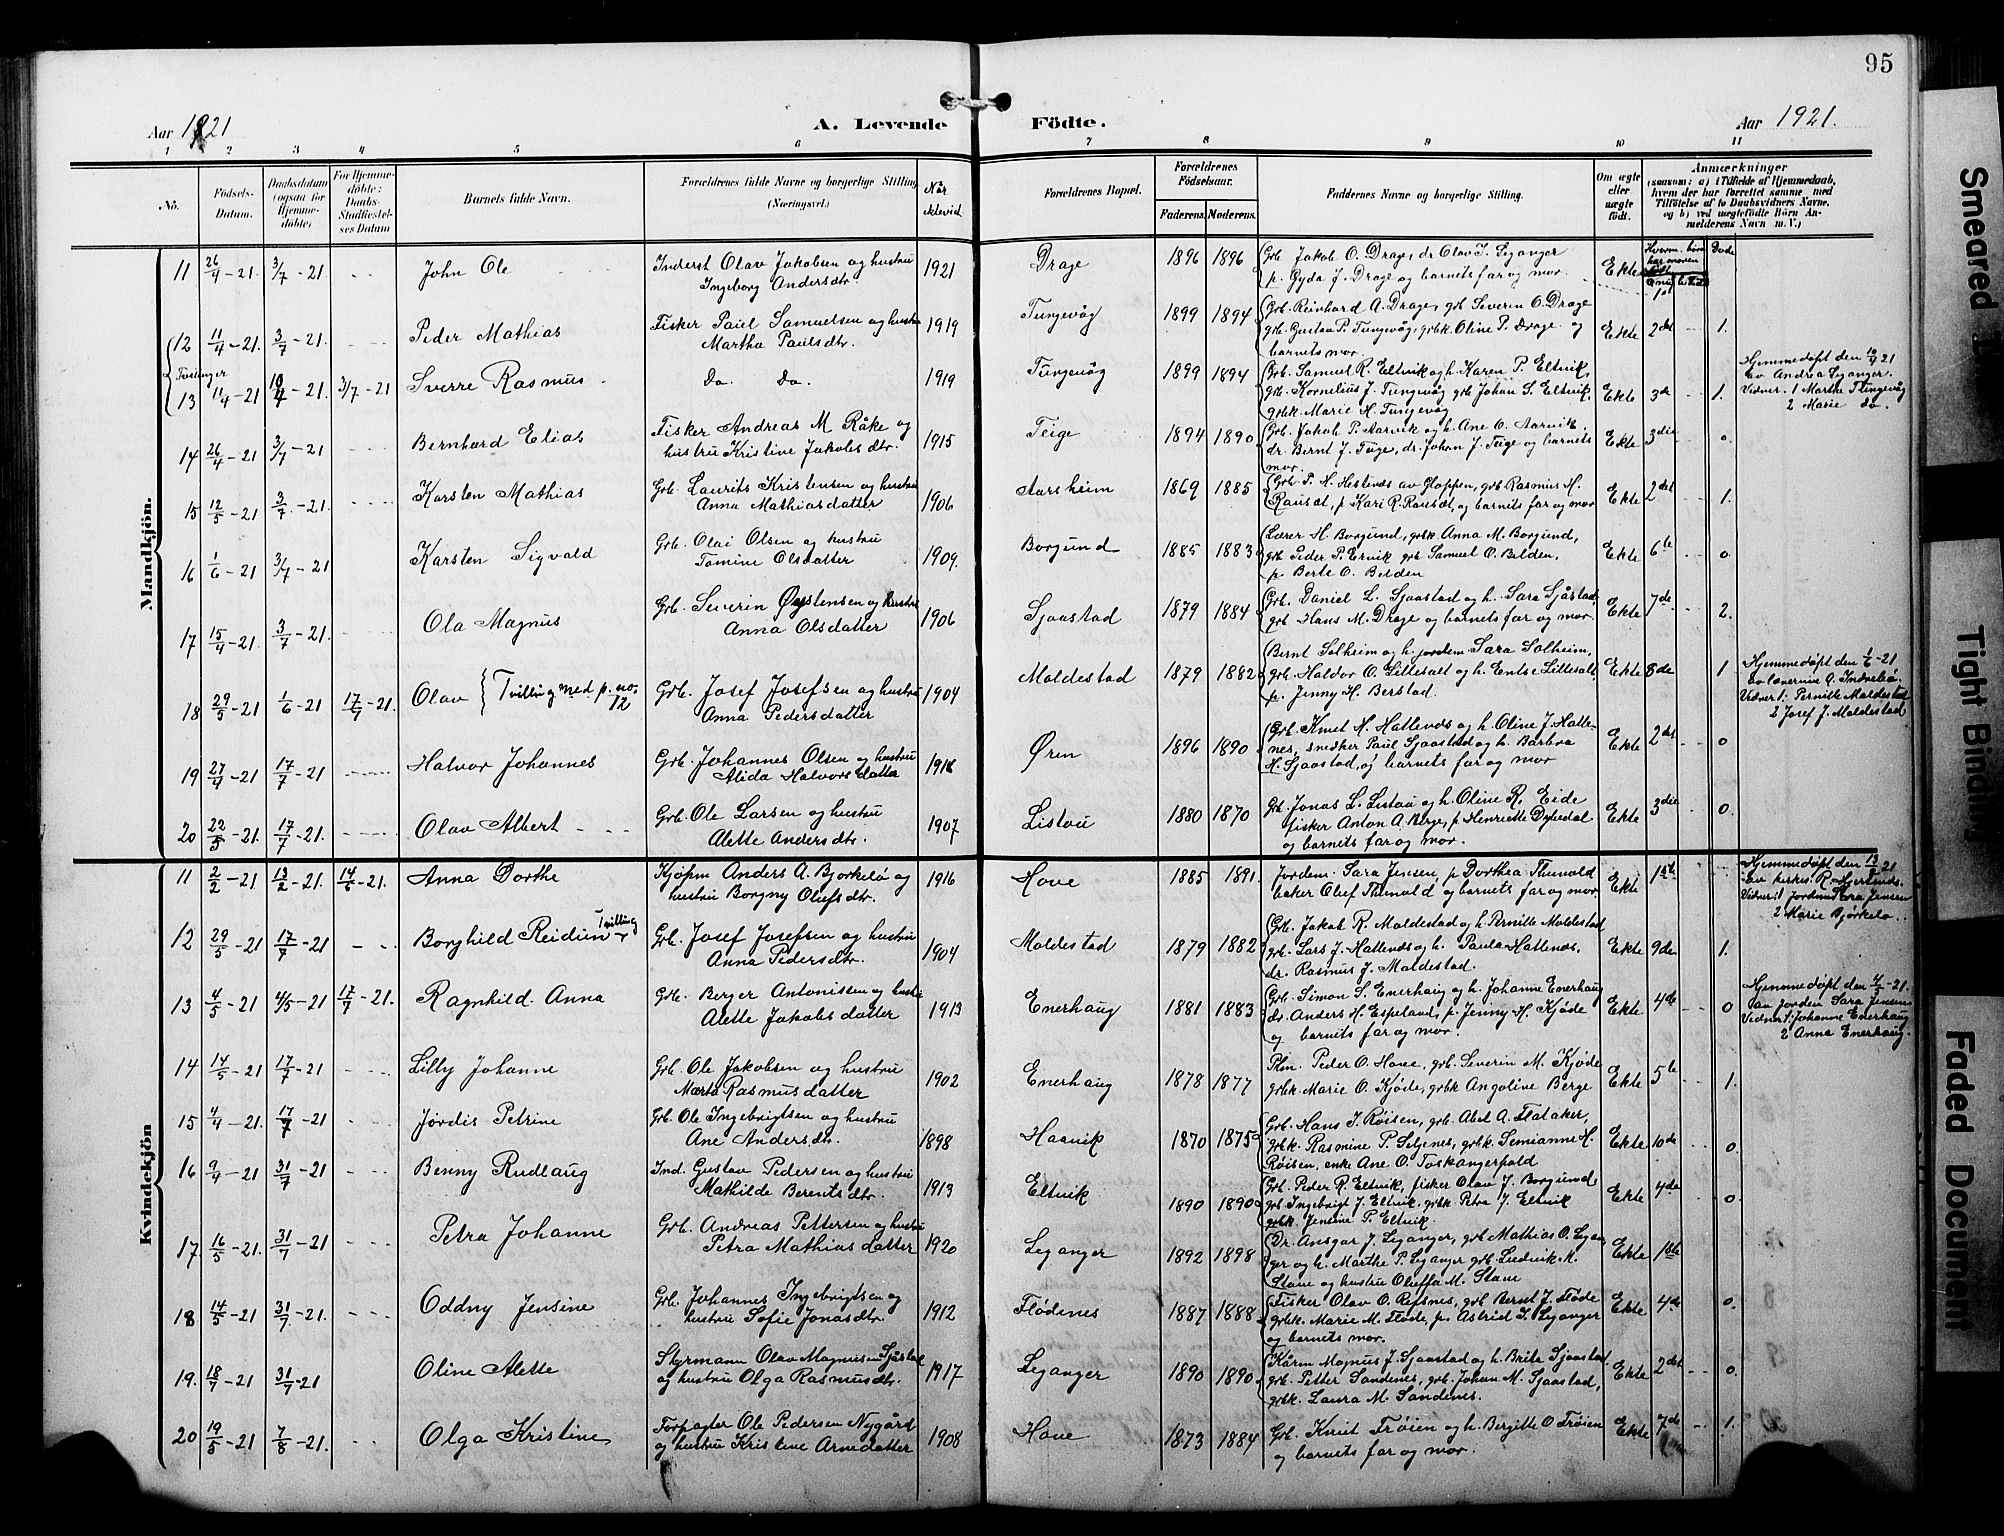 95
Aar 1921
A. Levende
Födte.
Aar 1921.
1 2 3 4 5 6 7 8 9 10 11
No.
Födsels-Datum.
Daabsdatum (ogsaa for Hjemme-döbte)
For Hjemme-döbte: Daabs-Stadfæstel-ses Datum
Barnets fulde Navn.
Forældrenes fulde Navne og borgerlige Stilling (Næringsvei.)
Når ektevid
Forældrenes Bopæl.
Forældrenes Födselsaar.
Faderens. Moderens.
Faddernes Navne og borgerlige Stilling.
Om ægte eller uægte födt.
Anmærkninger
(saasom: a) i Tilfælde af Hjemmedaab, hvem der har forrettet samme med Tilföielse af to Daabsvidners Navne, og b) ved uægtefödte Börn An-melderens Navn m.V.)
Mandkjön.
11 26/4-21. 3/7-21. John Ole Inderst Olav Jakobsen og hustru 1921 Drage 1896 1896 Grb. Jakob O. Drage, dr Olav J. Leganger Ekte
Ingeborg Andersdtr. p. Gyda J. Drage og barnets far og mor.
12 11/4-21. 3/7-21. Peder Mathias Fisker Paul Samuelsen og hustru 1919 Tungevåg 1899 1894 Grb. Reinhard A. Drage, grb Severin O. Drage Ekte 2det 1.
Martha Paulsdtr. grb. Gustav P. Tungevåg, grbk. Oline P. Drage og
barnets mor.
Tvillinger
13 11/4-21 10/4-21. 3/7-21 Sverre Rasmus Do. Do. 1919 Tungevåg 1899 1894 Grb. Samuel R. Eltvik og h. Karen P. Eltvik, Ekte 3de 1. Hjemmedøpt den 10/4 21
grb. Kornelius J. Tungevåg grb Johan S. Eltvik, av Andrea Leganger.
grbk Marie H. Tungevåg Vidner. 1 Marthe Tungevåg
2 Marie do.
14 26/4-21 3/7-21 Bernhard Elias Fisker Andreas M Råke og 1915 Teige 1894 1890 Grb. Jakob P. Aarvik og h. Ane O. Aarvik, Ekte 3die 0.
hustru Kristine Jakobsdtr. dr. Bernt J. Teige, dr. Johan J. Teige og barnets
mor.
15 12/5-21 3/7-21. Karsten Mathias Grb. Laurits Kristensen og hustru 1906 Aarsheim 1869 1885 Ekte 2det 1.
Anna Mathiasdatter og barnets far og mor
16 1/6-21 3/7-21 Karsten Sigvald Grb. Olai Olsen og hustru 1909. Borgund 1885 1883 Lærer H. Borgund, grbk Anna M. Borgund, Ekte 6te 0
Tomine Olsdatter grb Peder P. Ervik grb. Samuel O. Belden,
p. Berte O. Belden
17 15/4-21 3/7-21. Ola Magnus Grb. Severin Øystensen og hustru 1906 Sjaastad 1879 1884 Grb. Daniel L. Sjaastad og h. Sara Sjåstad, Ekte 7de 2.
Anna Olsdatter grb Hans M. Drage og barnets far og mor.
18 29/5-21 1/6-21 17/7-21. Olav Tvilling med p. no. 12 Grb. Josef Josefsen og hustru 1904 Moldestad 1879 1882 Bernt Solheim og h. jordem Sara Solheim, Ekte 8de 1 Hjemmedøpt den 1/6-21
Anna Pedersdatter grb. Haldor O. Lillesalt og h. Ents. Lillesalt
p. Jenny H. Berstad. Vidner 1: Pernille Moldestad
2 Josef J. Moldestad
19 27/4-21 17/7-21 Halvor Johannes Grb. Johannes Olsen og hustru 1918 Øren 1896 1890 Grb. Knut H. Hattenes og h. Oline J. Hatte- Ekte 2det 0
Alida Halvorsdatter nes, snedker Paul Sjaastad og h. Barbra
H. Sjaastad, og barnets far og mor
20 22/5-21. 17/7-21. Olav Albert Grb. Ole Larsen og hustru 1907 Listou 1880 1870 Grb. Jonas L. Listou og h. Oline R. Eide Ekte 3die 0.
Alette Andersdtr. fisker Anton A. Berge, p Henriette
og barnets far og mor.
Kvindekjön
11 2/2-21 13/2-21. 14/5-21. Anna Dorthe Kjøpm Anders A. Bjorkelo og 1916 Hove 1885 1891. Jordem. Sara Jensen, p Dorthea Thunold Ekte 1ste Hjemmedøpt den 13/2 21
hustru Borgny Olufsdtr. baker Oluf Thunold og barnets far og mor. Vidner: 1 Jordem Sara Jensen
2 Marie Bjørkelo.
12 29/5-21 17/7-21 Borghild Reidun Tvilling Grb. Josef Josefsen og hustru 1904 Moldestad 1879 1882 Grb. Jakob R. Moldestad og h Pernille Moldestad Ekte 9de 1.
Anna Pedersdtr. grb. Lars J. Hattenes og h. Paula Hattenes.
dr. Rasmus J. Maldestad.
13 4/5-21 4/5-21 17/7-21. Ragnhild Anna Grb. Berger Antonissen og hustru 1913 Enerhaug 1881 1883 Grb. Simon S. Enerhaug og h. Johanne Enerhaug Ekte 4de 0 Hjemmedøpt den 4/5-21.
Alette Jakobsdatter dr. Anders H. Espeland, p Jenny H. Kjøde av jordem Sara Jensen
og barnets far og mor. Vidner 1: Johanne Enerhaug
2 Anna Enerhaug.
14 14/5-21 17/7-21 Lilly Johanne Grb. Ole Jakobsen og hustru 1902 Enerhaug 1878 1877 Plm. Peder O. Hove, grb. Severin M. Kjøde Ekte 5te 1.
Marta Rasmusdatter grbk Marie O. Kjøde, grbk Angoline Berge
15 4/4-21. 17/7-21 Jørdis Petrine Grb. Ole Ingebrigtsen og hustru 1898 Haavik 1870 1875 Grb. Hans I. Røisen, grb. Abel A. Flataker, Ekte 10de 0.
Ane Andersdtr. grbk. Rasmine P. Seljenes, grbk Semianne H.
Røisen, enke Ane O. Toskangerpold
16 9/4-21 31/7-21 Benny Rudlaug Ind. Gustav Pedersen og hustru 1913 Eltvik 1890 1890 Grb. Peder R. Eltvik, fisker Olav J. Borgund Ekte 4de 0
Mathilde Berentsdtr. grb Ingebrigt J. Eltvik, grbk Petra J. Eltvik
grbk. Jensine P. Eltvik.
17 16/5-21. 31/7-21 Petra Johanne Grb. Andreas Pettersen og hustru 1920 Leganger 1892 1898 Dr. Ansgar J. Leganger, grb Mathias O. Legan Ekte 1ste
Petra Mathiasdatter ger og h. Marthe P. Leganger grb Ludvik M.
Stave og hustru Oluffa M. Stave
18 14/5-21 31/7-21. Oddny Jensine Grb. Johannes Ingebrigtsen og 1912 Flødenes 1887 1888 Fisker Olav O. Refsnes, grb Bernt J. Fløde Ekte 4de 0.
hustru Sofie Jonasdtr. grbk. Marie M. Fløde, p. Astrid I. Leganger
og barnets mor.
19. 18/7-21 31/7-21 Oline Alette Styrmann Olav Magnussen Sjåstad 1917 Leganger 1890 1890 Kårm Magnus J. Sjaastad og h. Brita Sjaastad Ekte 2det 0.
og hustru Olga Rasmusdtr. grb. Petter Sandenes, grb. Johan M. Sjaastad,
grbk. Laura M. Sandenes.
20 19/5-21 7/8-21. Olga Kristine Forpagter Ole Pedersen Nygård 1908 Hove 1873 1884 Grb. Knut Frøien og h. Bergitte O Frøien Ekte 7de 1.
og hustru Kristine Arnedatter og barnets far og mor.
Smeared
Tight Binding
Faded Document